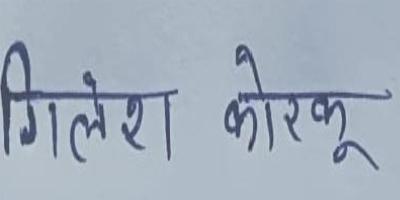 गिलेश कोरकू